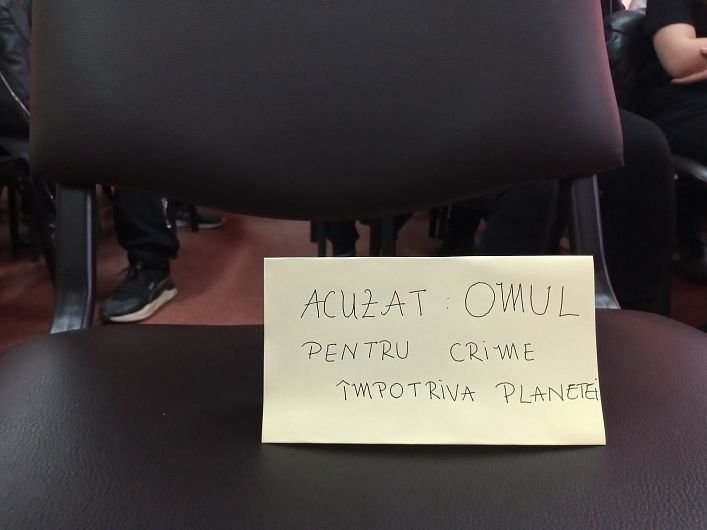 ACUZAT : OMUL
PENTRU CRIME
ÎMPOTRIVA PLANETEI